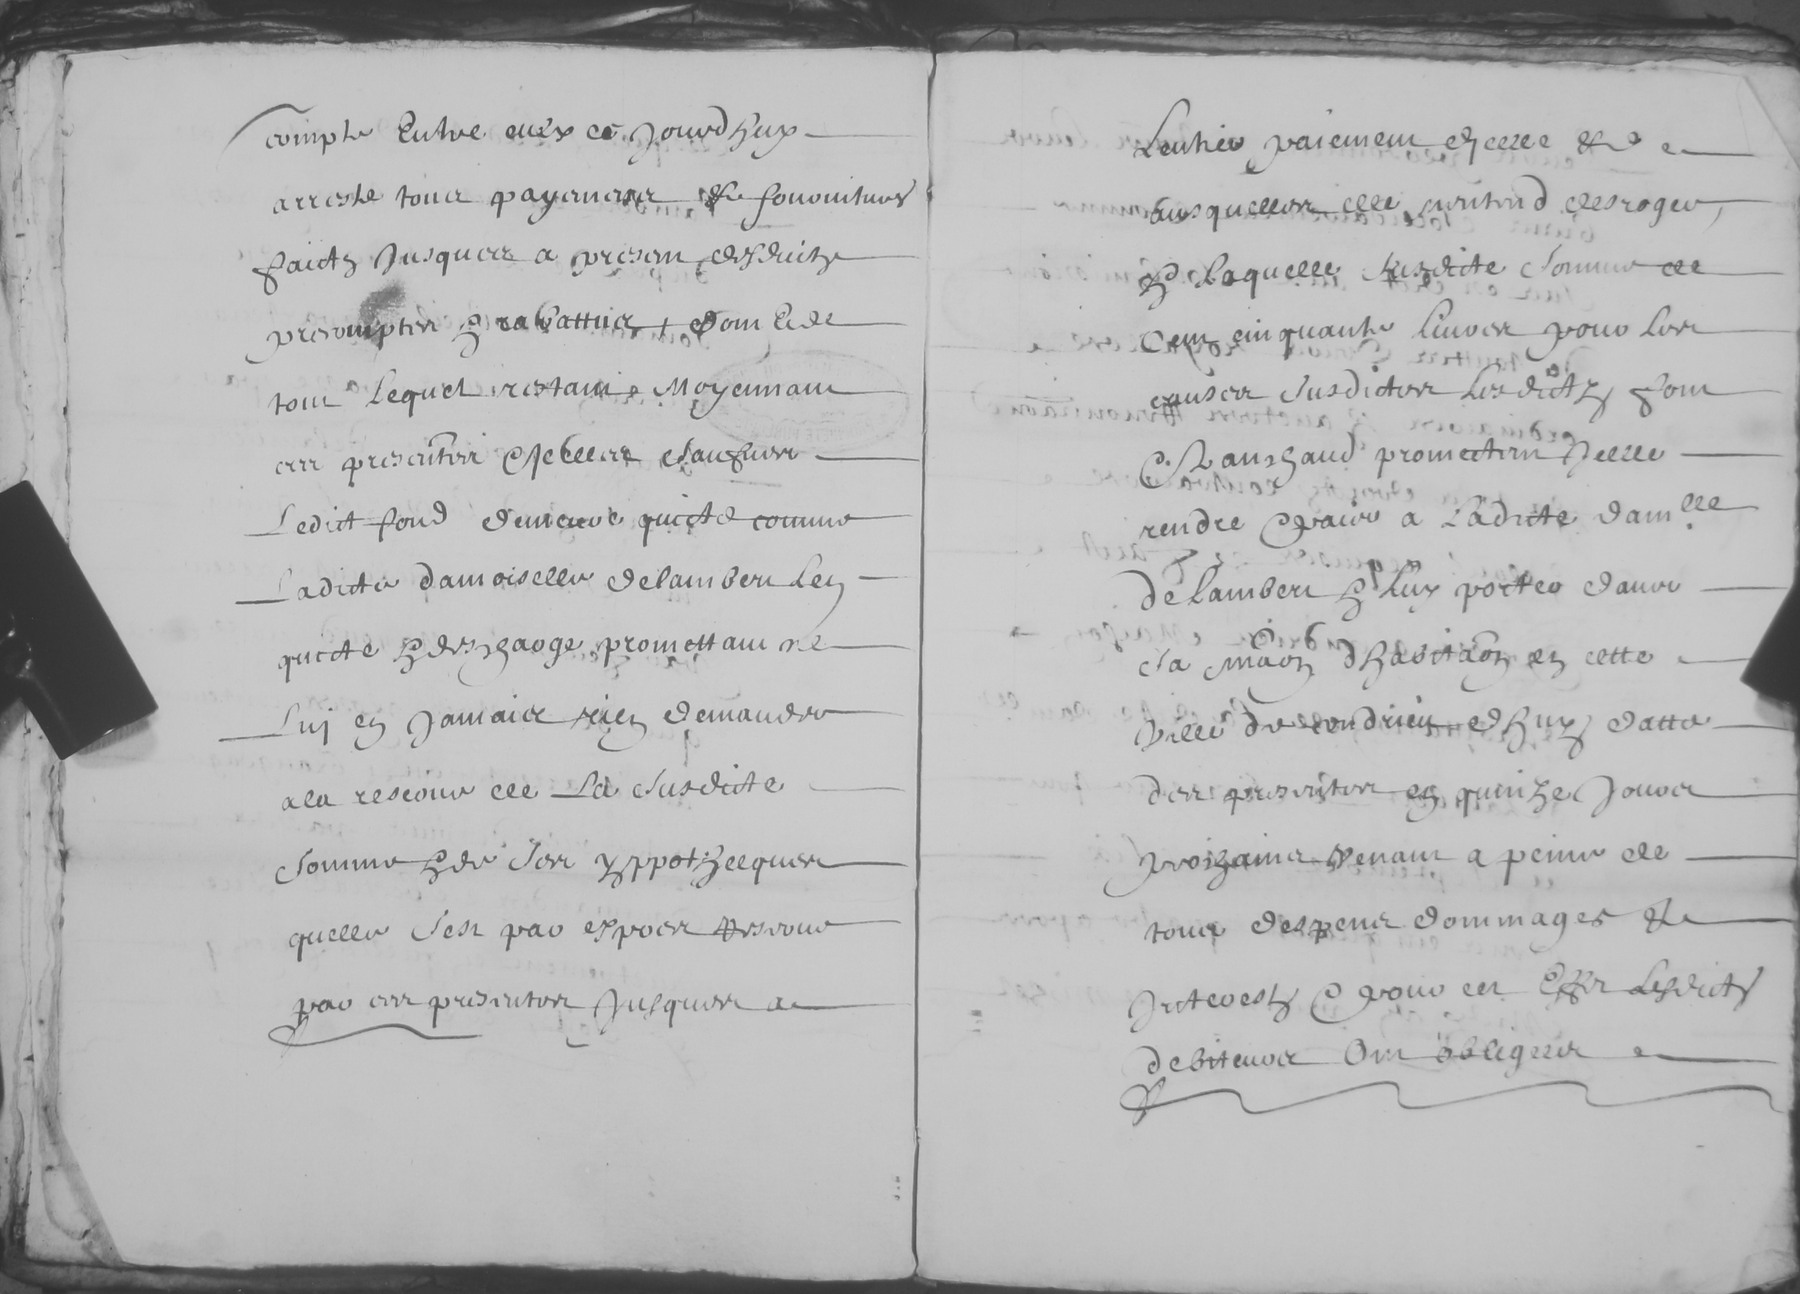 compte Entre eulx ce Jourdhuy
arreste tous payemens & fournitures
faictz Jusques a present desduitz
precomptez & rabattus dont & de
tout Lequel restant Moyennant
ces presentes
Ledict fond demeure quicte comme
Ladicte damoiselle delambert Len
quicte & descharge promettant ne
Luy en Jamais rien demander
a la reserve de La susdicte
somme & de ses yppothecques
quelle sest par expres reserve
par ces presentes Jusques a
Lentier paiement dicelle &
ausquelles elle nentend desroger
& laquelle susdicte somme de
cent cinquante livres pour les
causes susdictes lesdictz fond
& promettent Icelle
rendre & paier a Ladicte damlle
de lambert & luy porter dans
sa maon dhabitaon en cette
ville de condrieu dhuy datte
des presentes en quinze Jours
prochains venant a peine de
tous despens dommages &
Interestz & pour cet Effet Lesdictz
debiteurs Ont obliges